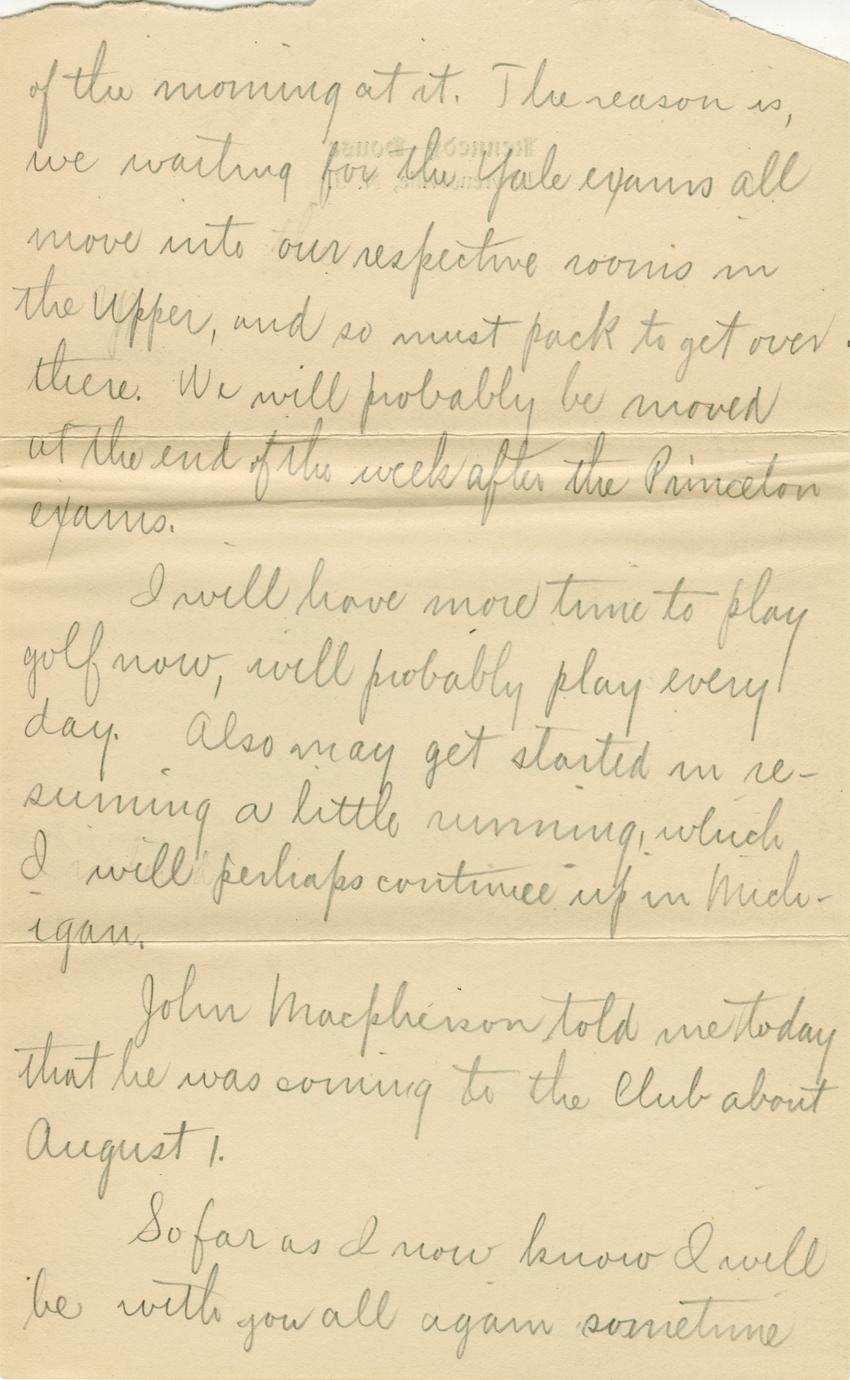 of the morning at it. The reason is,
we waiting for the Yale exams all
move into our respective rooms in
the Upper, and so must pack to get over
there. We will probably be moved
at the end of the week after the Princeton
exams.
I will have more time to play
golf now, will probably play every
day. Also may get started in re-
suming a little running, which
I will perhaps continue up in Mich-
igan.
John Macpherson told me today
that he was coming to the Club about
August 1.
So far as I now know I will
be with you all again sometime